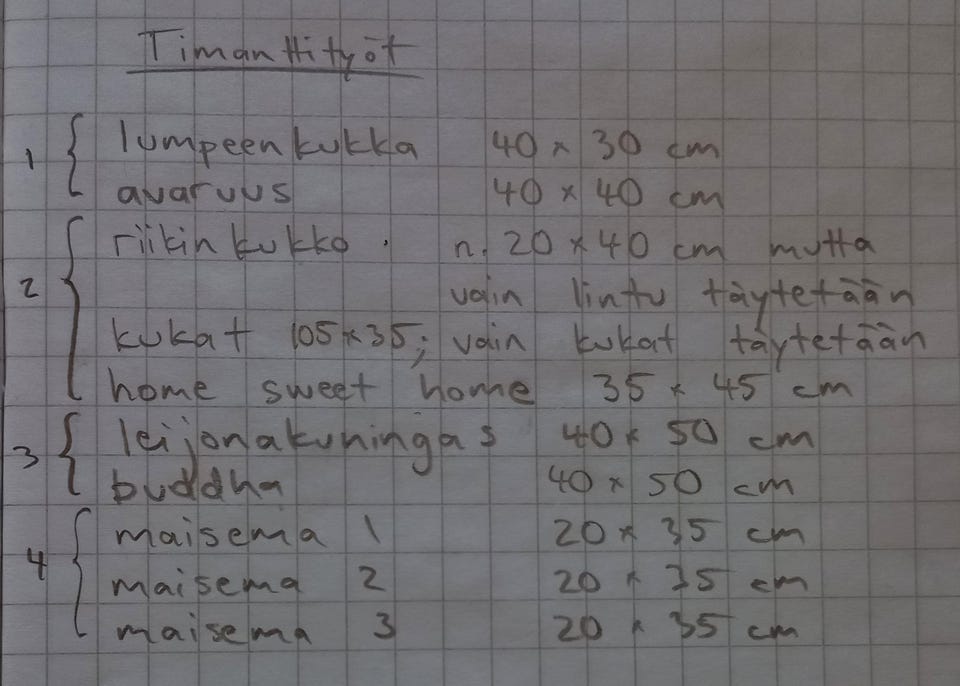 Timanttityöt
1 { lumpeenkukka 40 x 30 cm
avaruus 40 x 40 cm
2 { riikinkukko . n. 20 x 40 cm mutta
vain lintu täytetään
kukat 105x35; vain kukat täytetään
home sweet home 35 x 45 cm
3 { leijonakuningas 40 x 50 cm
buddha 40 x 50 cm
4 { maisema 1 20 x 35 cm
maisema 2 20 x 35 cm
maisema 3 20 x 35 cm